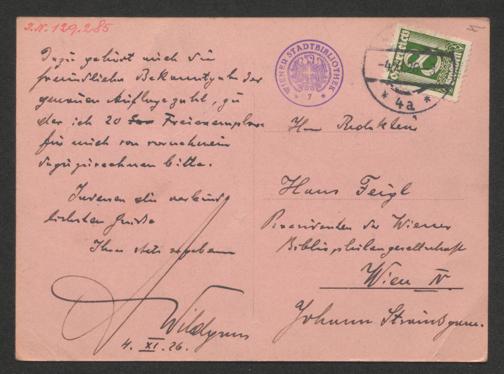 J.N. 129.285
Dazu gehört auch die
freundliche Bekanntgabe der
genauen Auflagezahl, zu
der ich 20 Freiexemplare
für mich von vornherein
dazuzurechnen bitte.
Indessen die verbind-
lichsten Grüße
Ihres stets ergebenen
Wildgans
4. XI. 26.
WIENER STADTBIBLIOTHEK
* 7 *
* 4a *
Herrn Redakteur
Hans Feigl
Präsidenten der Wiener
Bibliophilengesellschaft
Wien IV.
Johann Straussgasse